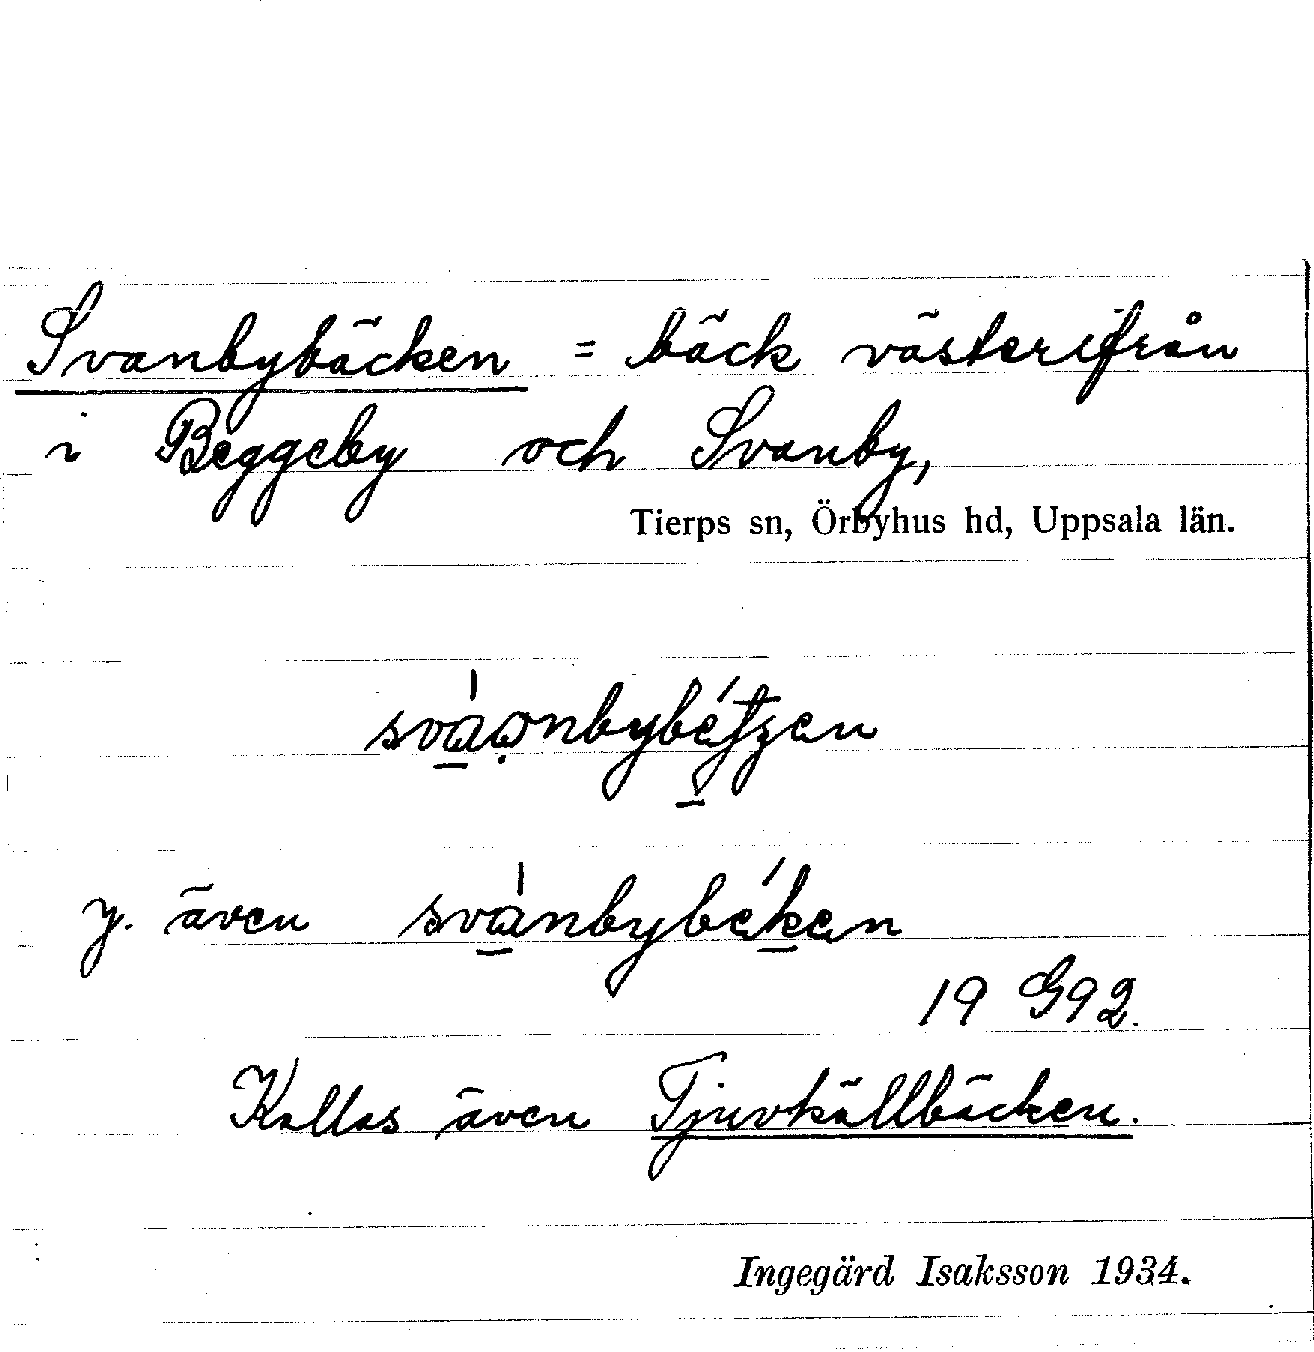 Svanbybäcken = bäck västerifrån
i Beggeby och Svanby,
Tierps sn, Örbyhus hd, Uppsala län.
y. även
19 G92.
Kallas även Tjuvkällbäcken.
Ingegärd Isaksson 1934.